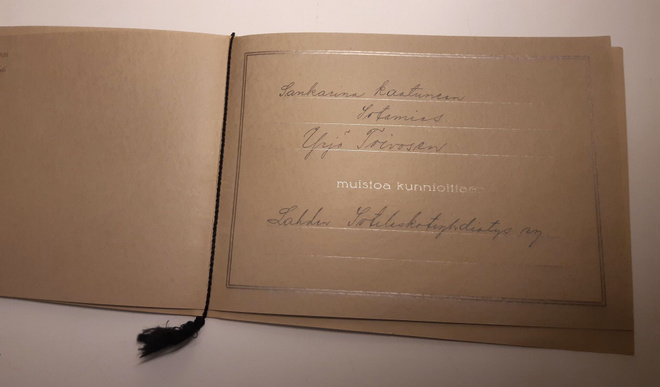 Sankarina kaatuneen
Sotamies
Yrjö Toivosen
muistoa kunnioittaen
Lahden Sotaleskotyhdistys ry.